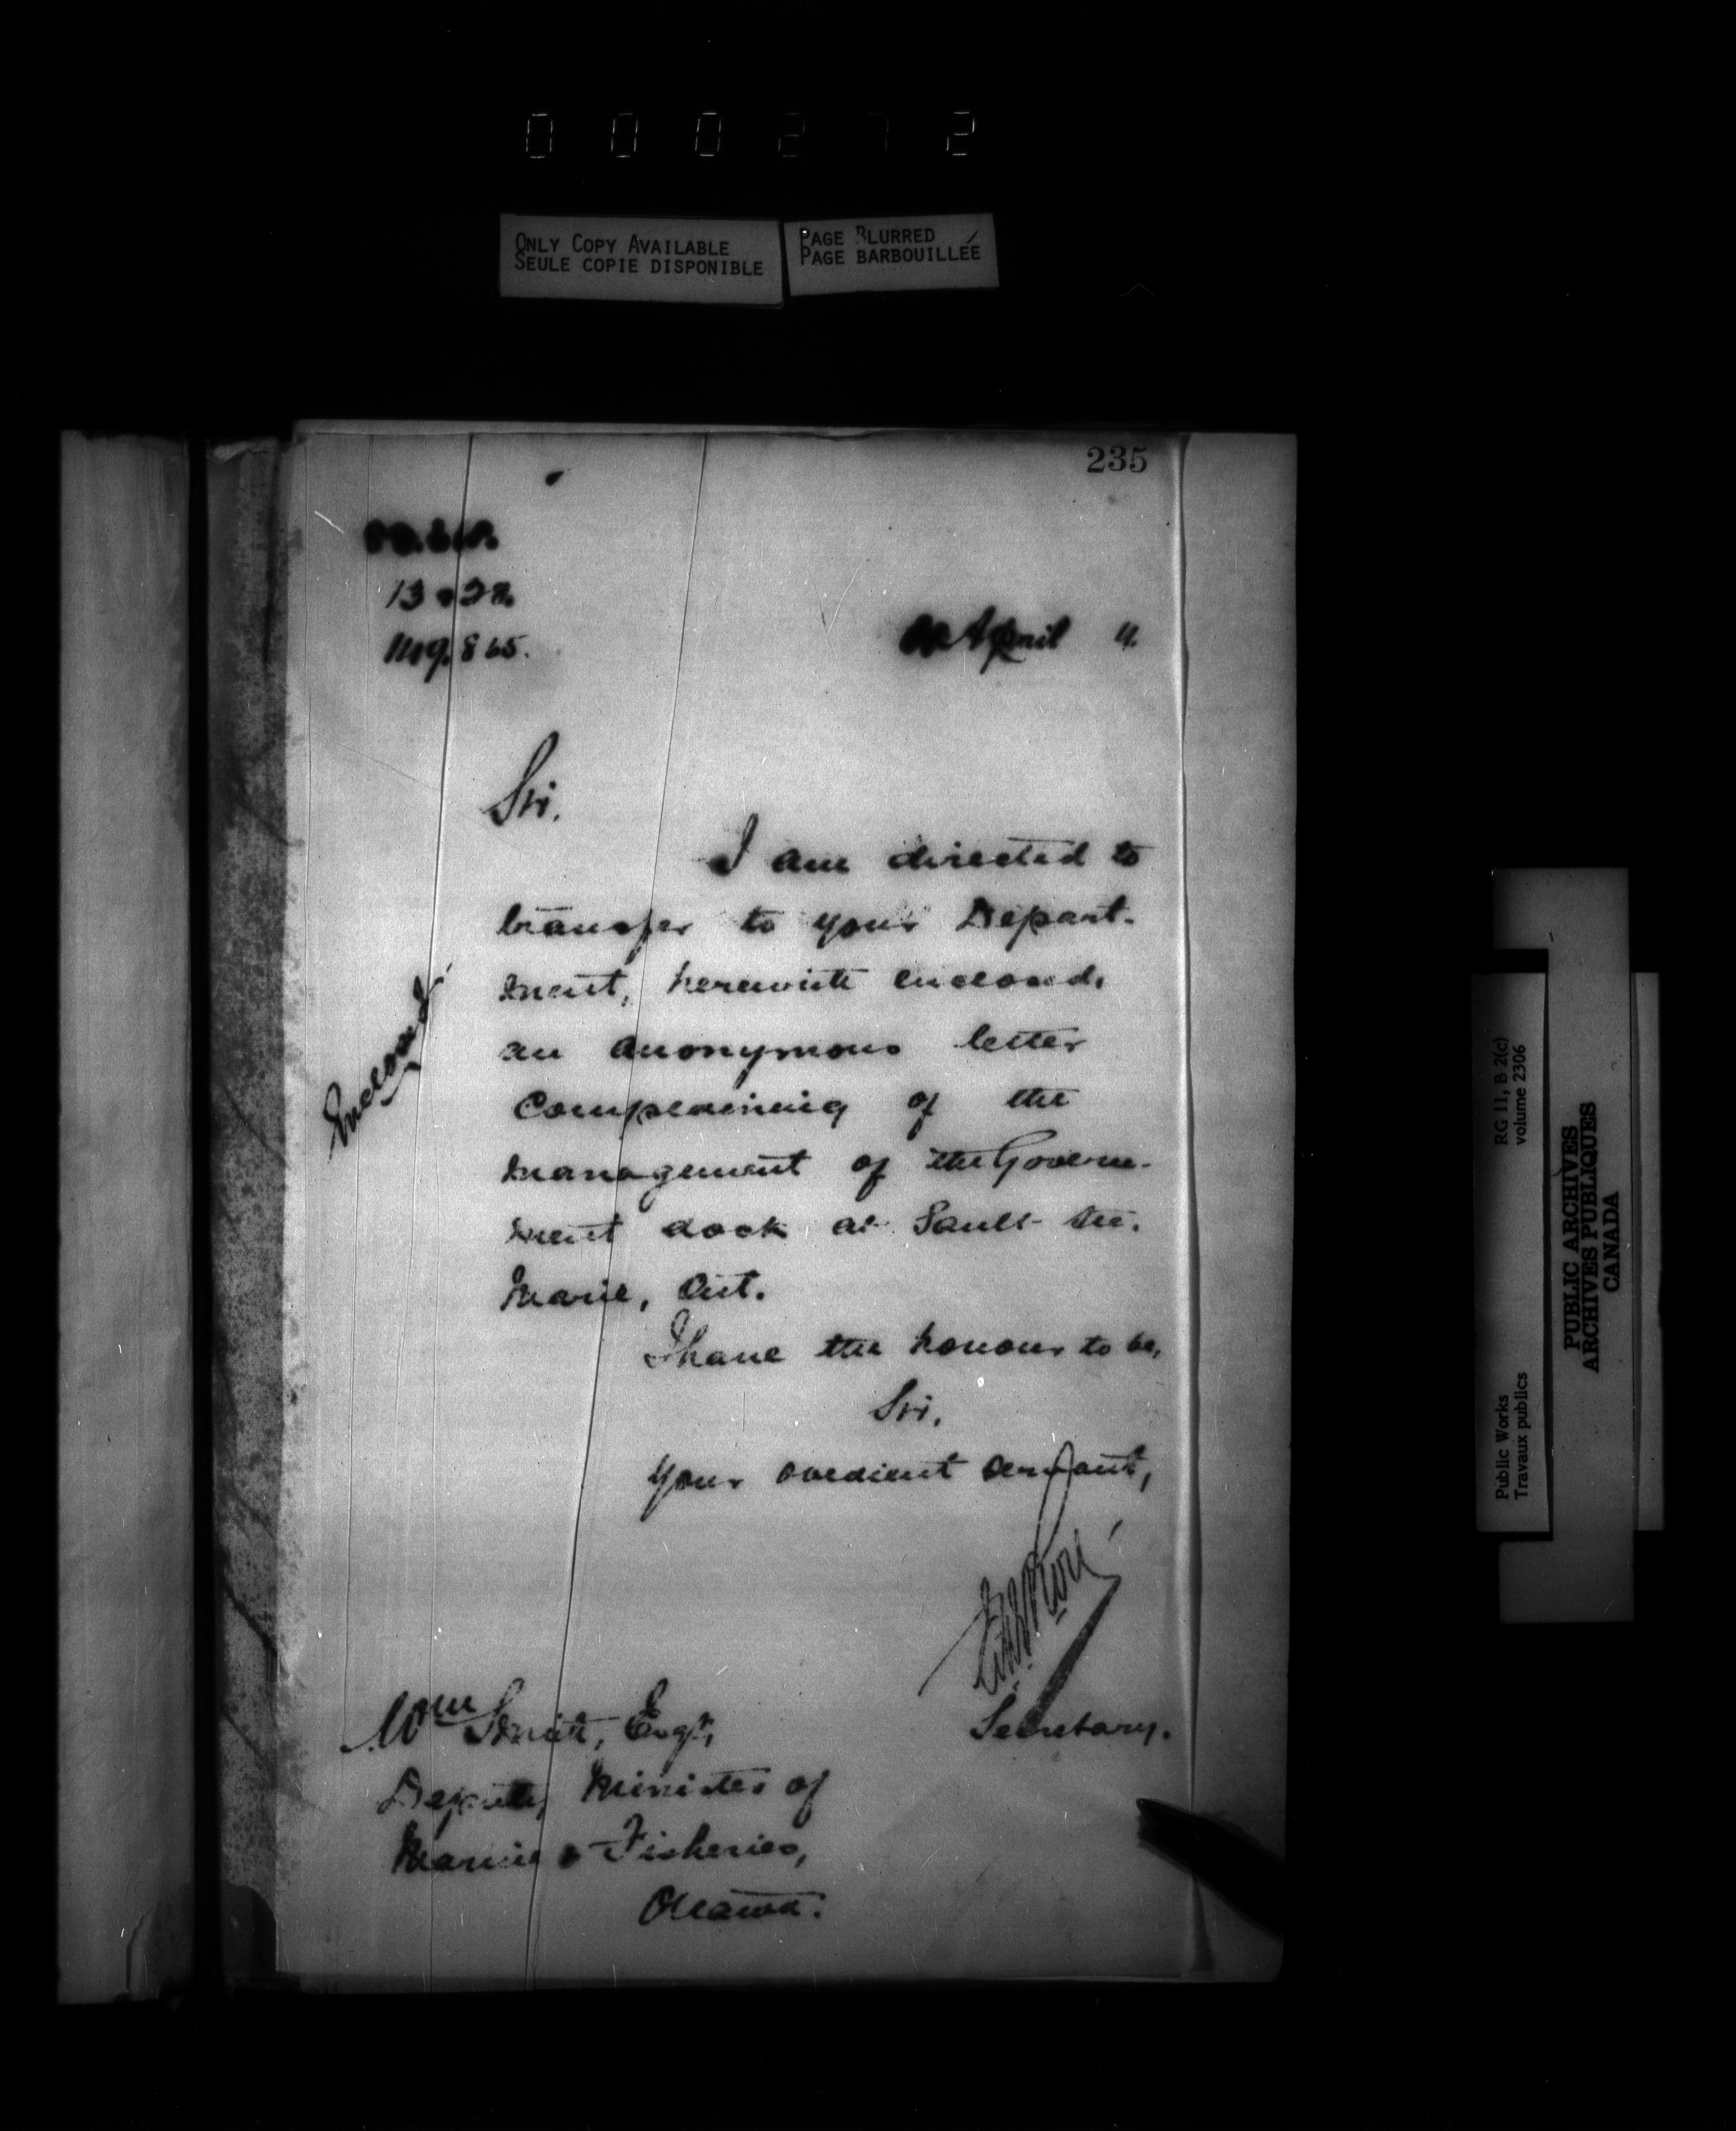 000272
ONLY COPY AVAILABLE
SEULE COPIE DISPONIBLE
PAGE BLURRED
PAGE BARBOUILLÉE
235
865.
April
Sir,
I am directed to
transfer to your Depart-
ment, herewith enclosed,
an anonymous letter
complaining of the
management of the Govern-
ment dock at Sault Ste.
Marie, Ont.
I have the honour to be,
Sir,
Your obedient servant,
Secretary.
Wm Smith, Esqr,
Deputy Minister of
Marine & Fisheries,
Ottawa.
Enclosed
RG 11, B 2(c)
volume 2306
Public Works
Travaux publics
PUBLIC ARCHIVES
ARCHIVES PUBLIQUES
CANADA